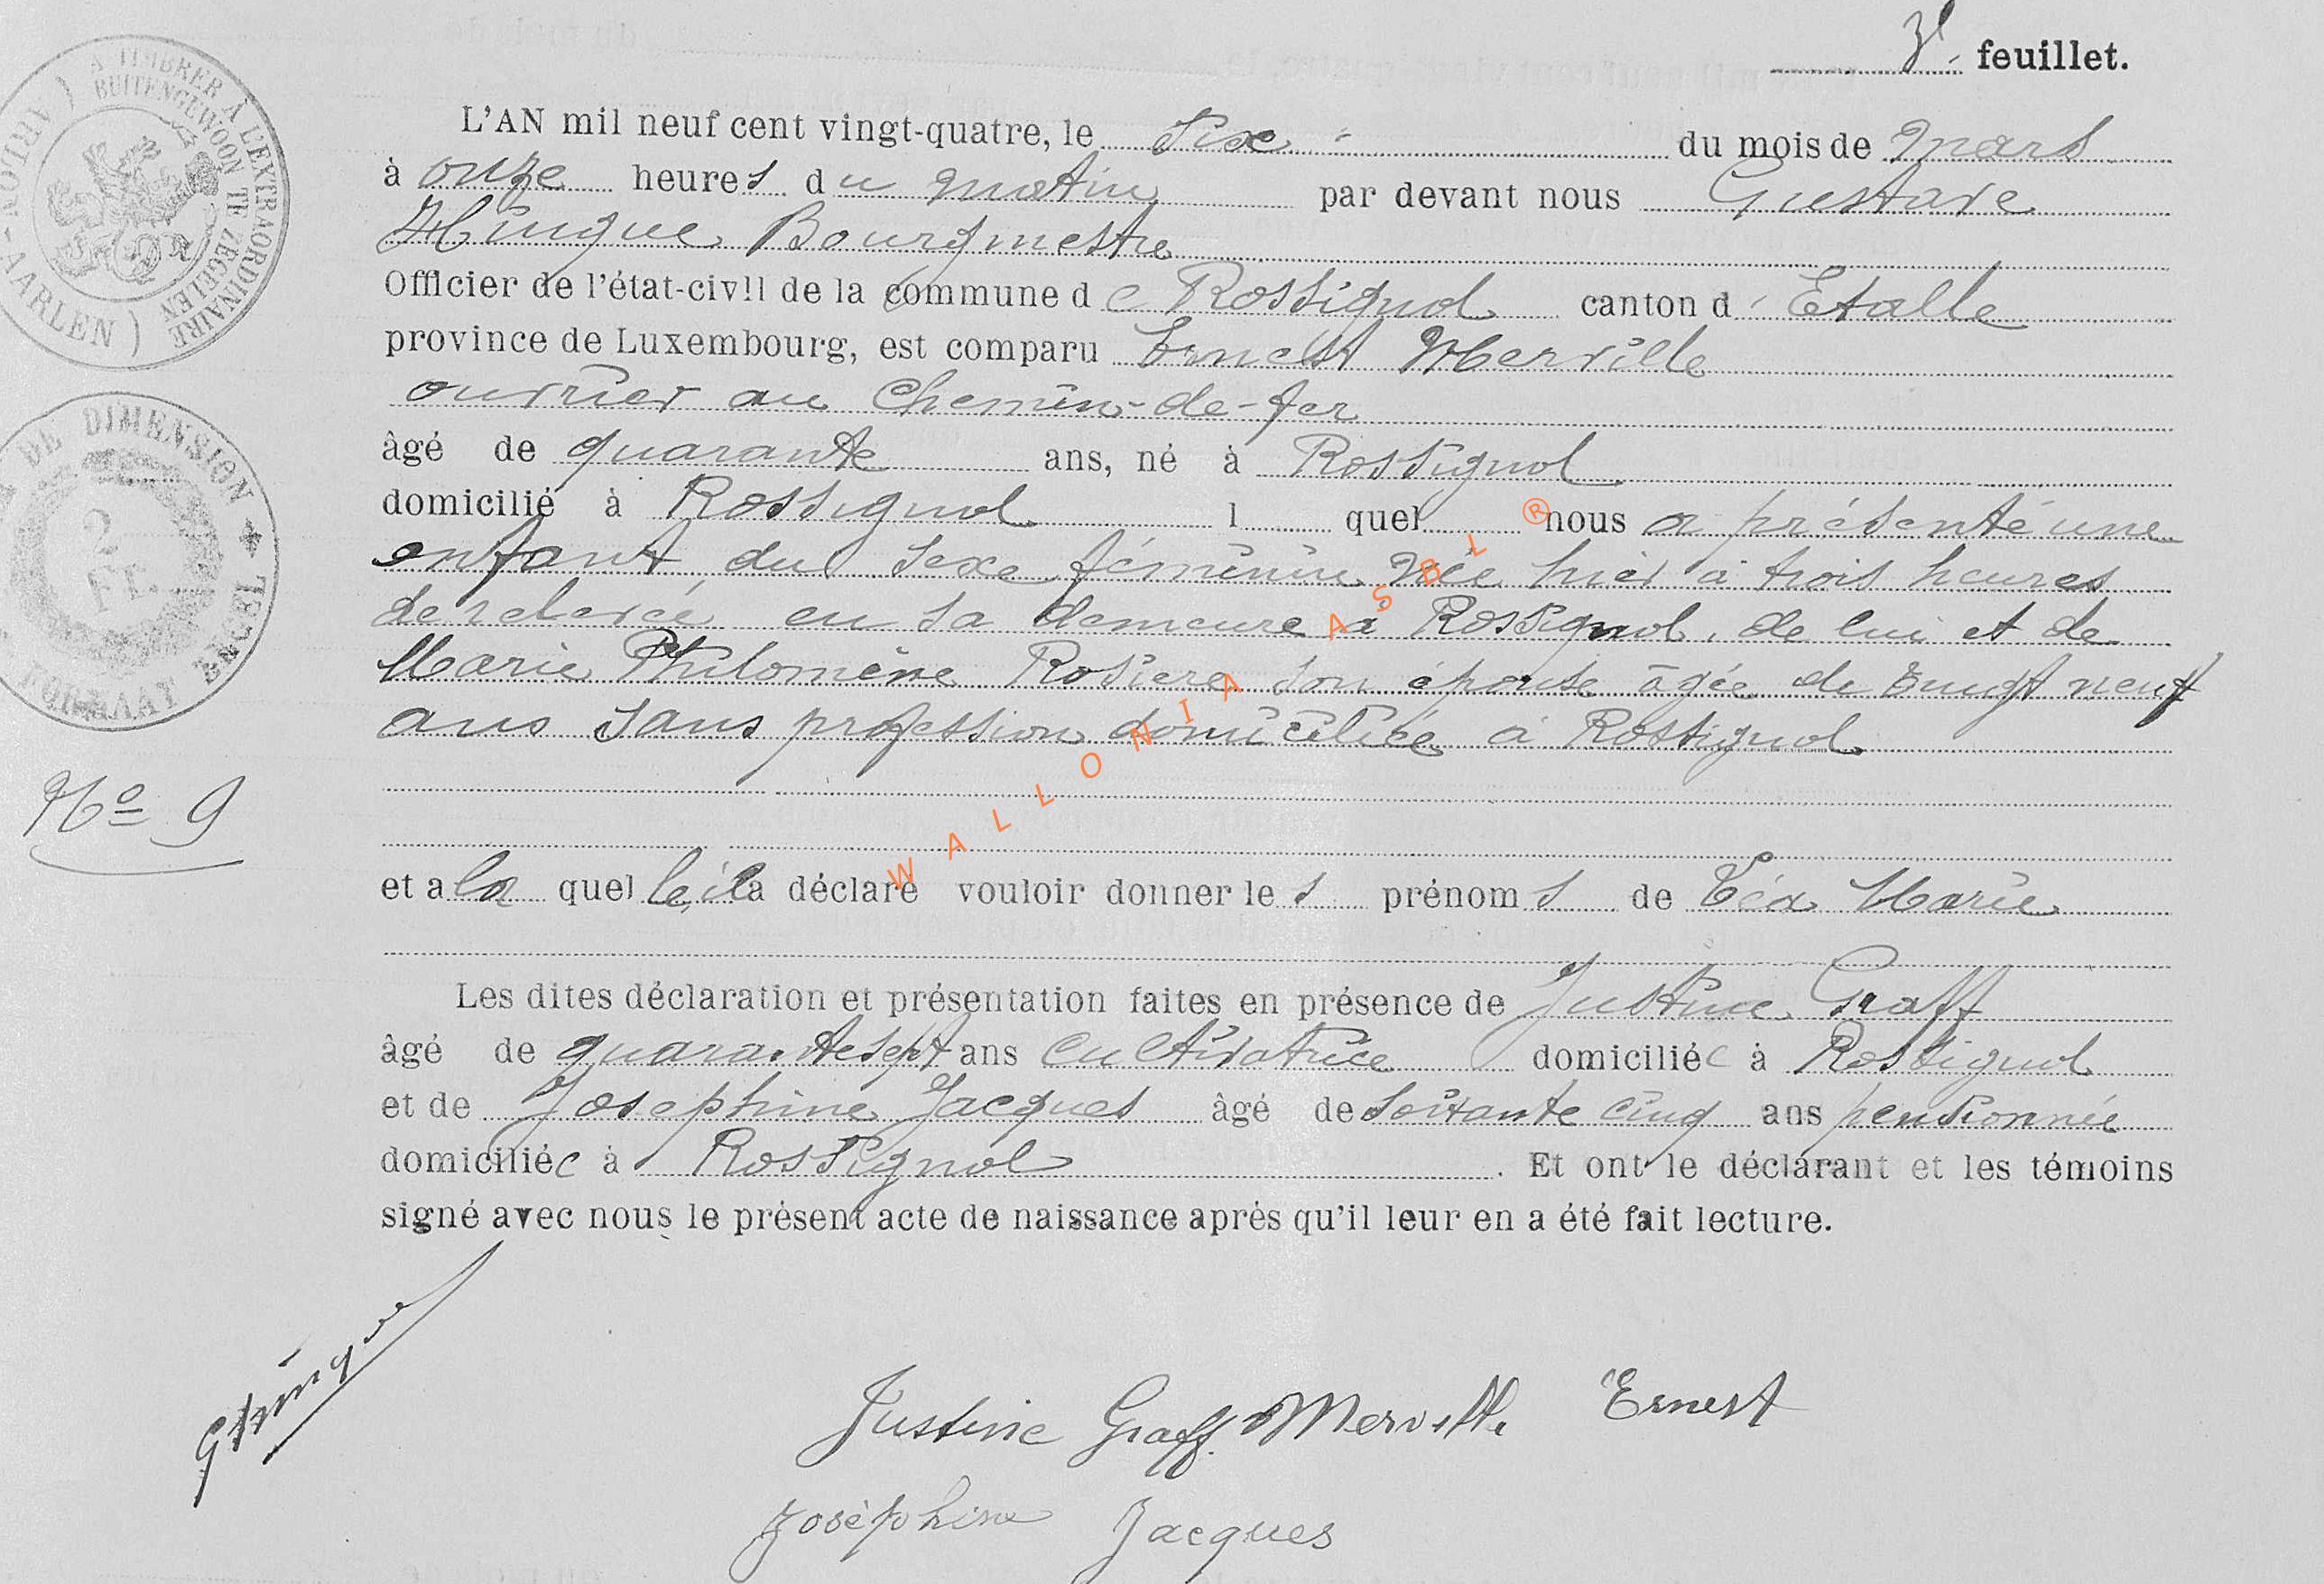 3e feuillet.
A TIMBRER À L'EXTRAORDINAIRE
BUITENGEWOON TE ZEGELEN
( ARLON - AARLEN )
L'AN mil neuf cent vingt-quatre, le six du mois de mars
à onze heures du matin par devant nous Gustave
Hinque Bourgmestre
Officier de l'état-civil de la commune de Rossignol canton d'Etalle
province de Luxembourg, est comparu Ernest Merville
ouvrier au chemin-de-fer
âgé de quarante ans, né à Rossignol
domicilié à Rossignol lquel nous a présenté une
enfant du sexe féminin née hier à trois heures
de relevée en sa demeure à Rossignol, de lui et de
Marie Philomène Rosiere son épouse âgée de vingt neuf
ans sans profession domiciliée à Rossignol
DE DIMENSION
2
Fr.
ZEGEL
FORMAAT
No 9
WALLONIA ASBL ®
et a la quelle il a déclaré vouloir donner les prénoms de Léa Marie
Les dites déclaration et présentation faites en présence de Justine Graff
âgé de quarante sept ans cultivatrice domiciliée à Rossignol
et de Josephine Jacques âgé de soixante cinq ans pensionnée
domiciliée à Rossignol. Et ont le déclarant et les témoins
signé avec nous le présent acte de naissance après qu'il leur en a été fait lecture.
GHinque
Justine Graff Merville Ernest
Joséphine Jacques